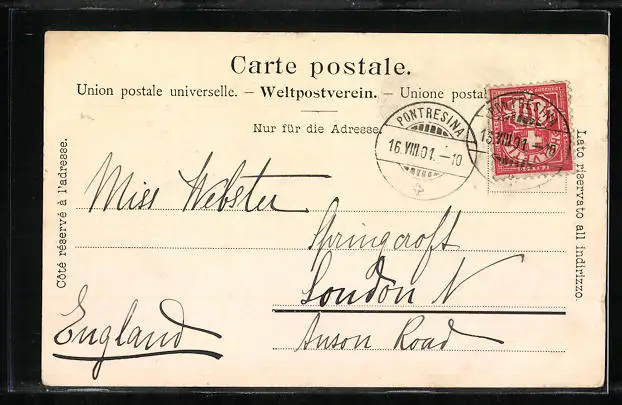 Carte postale.
Union postale universelle. – Weltpostverein. – Unione postal
Nur für die Adresse.
PONTRESINA
16.VIII.01.–10
Côté réservé à l'adresse.
Lato riservato all indirizzo.
Miss Webster
Springcroft
London N
England
Anson Road